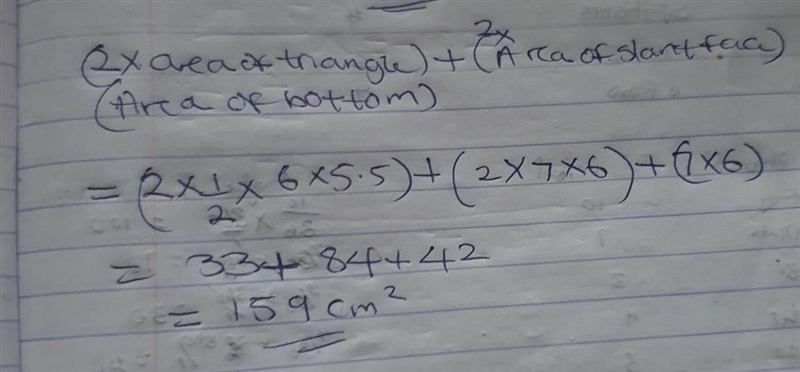 (2x area of triangle) + (2x Area of slant face)
(Area of bottom)
= (2 x 1/2 x 6 x 5.5) + (2 x 7 x 6) + (7 x 6)
= 33 + 84 + 42
= 159 cm²